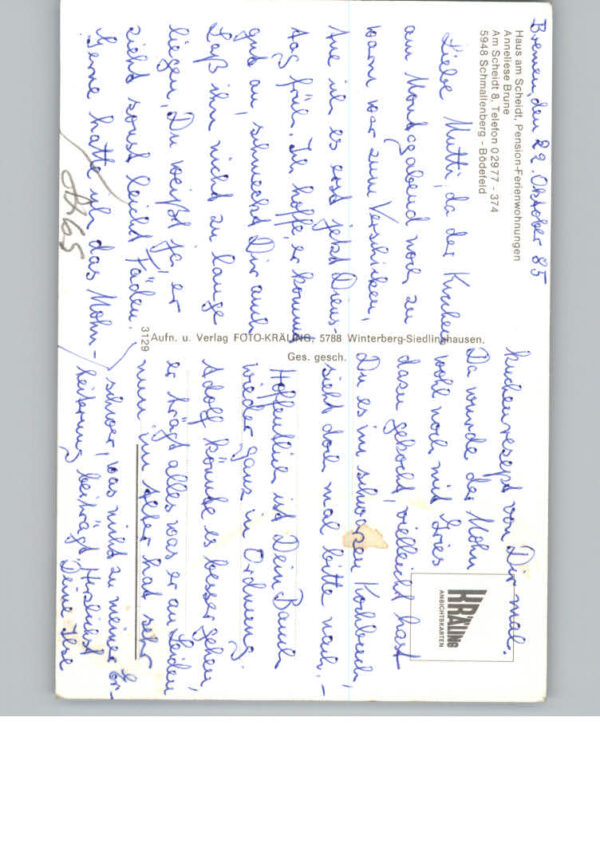 Bremen, den 29. Oktober 85
Haus am Scheidt, Pension-Ferienwohnungen
Anneliese Brune
Am Scheidt 8, Telefon 0 29 77 - 374
5948 Schmallenberg - Bödefeld
Liebe Mutti, da der Kuchen
am Montagabend noch zu
warm war zum Verschicken,
tue ich es erst jetzt Diens-
tag früh. Ich hoffe, er kommt
gut an, schmeckt Dir auch
Laß ihn nicht zu lange
liegen, Du weißt ja, er
zieht sonst leicht Fäden.
Gerne hätte ich das Mohn-
kuchenrezept von Dir mal.
Da wurde der Mohn
wohl noch mit Gries
dazu gekocht, vielleicht hast
Du es im schwarzen Kochbuch,
sieht doch mal bitte nach. -
Hoffentlich ist Dein Bauch
wieder ganz in Ordnung.
Adolf könnte es besser gehen,
er trägt alles was er an Leiden
nun im Alter hat, sehr
schwer, was nicht zu meiner Er-
heiterung beiträgt. Herzlichst
Deine Ilse
3129
Aufn. u. Verlag FOTO-KRÄLING, 5788 Winterberg-Siedlinghausen,
Ges. gesch.
KRÄLING
ANSICHTSKARTEN